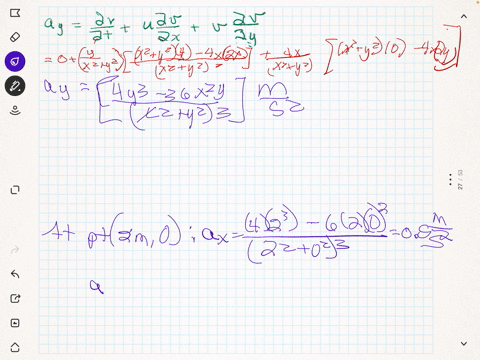 ay = ∂v/∂t + u ∂v/∂x + v ∂v/∂y
= 0 + (y/(x²+y²)) [((x²+y²)(4) - 4x(2x))/(x²+y²)²] + 4x/(x²+y²) [(x²+y²)(0) - 4x(2y)]
ay = [(4y3 - 36x2y)/(x2+y2)3] m/s2
At pt(2m, 0) : ax = ((4)(2³) - 6(2)(0)²)/(2²+0²)³ = 0.5 m/s2
a
27 / 53